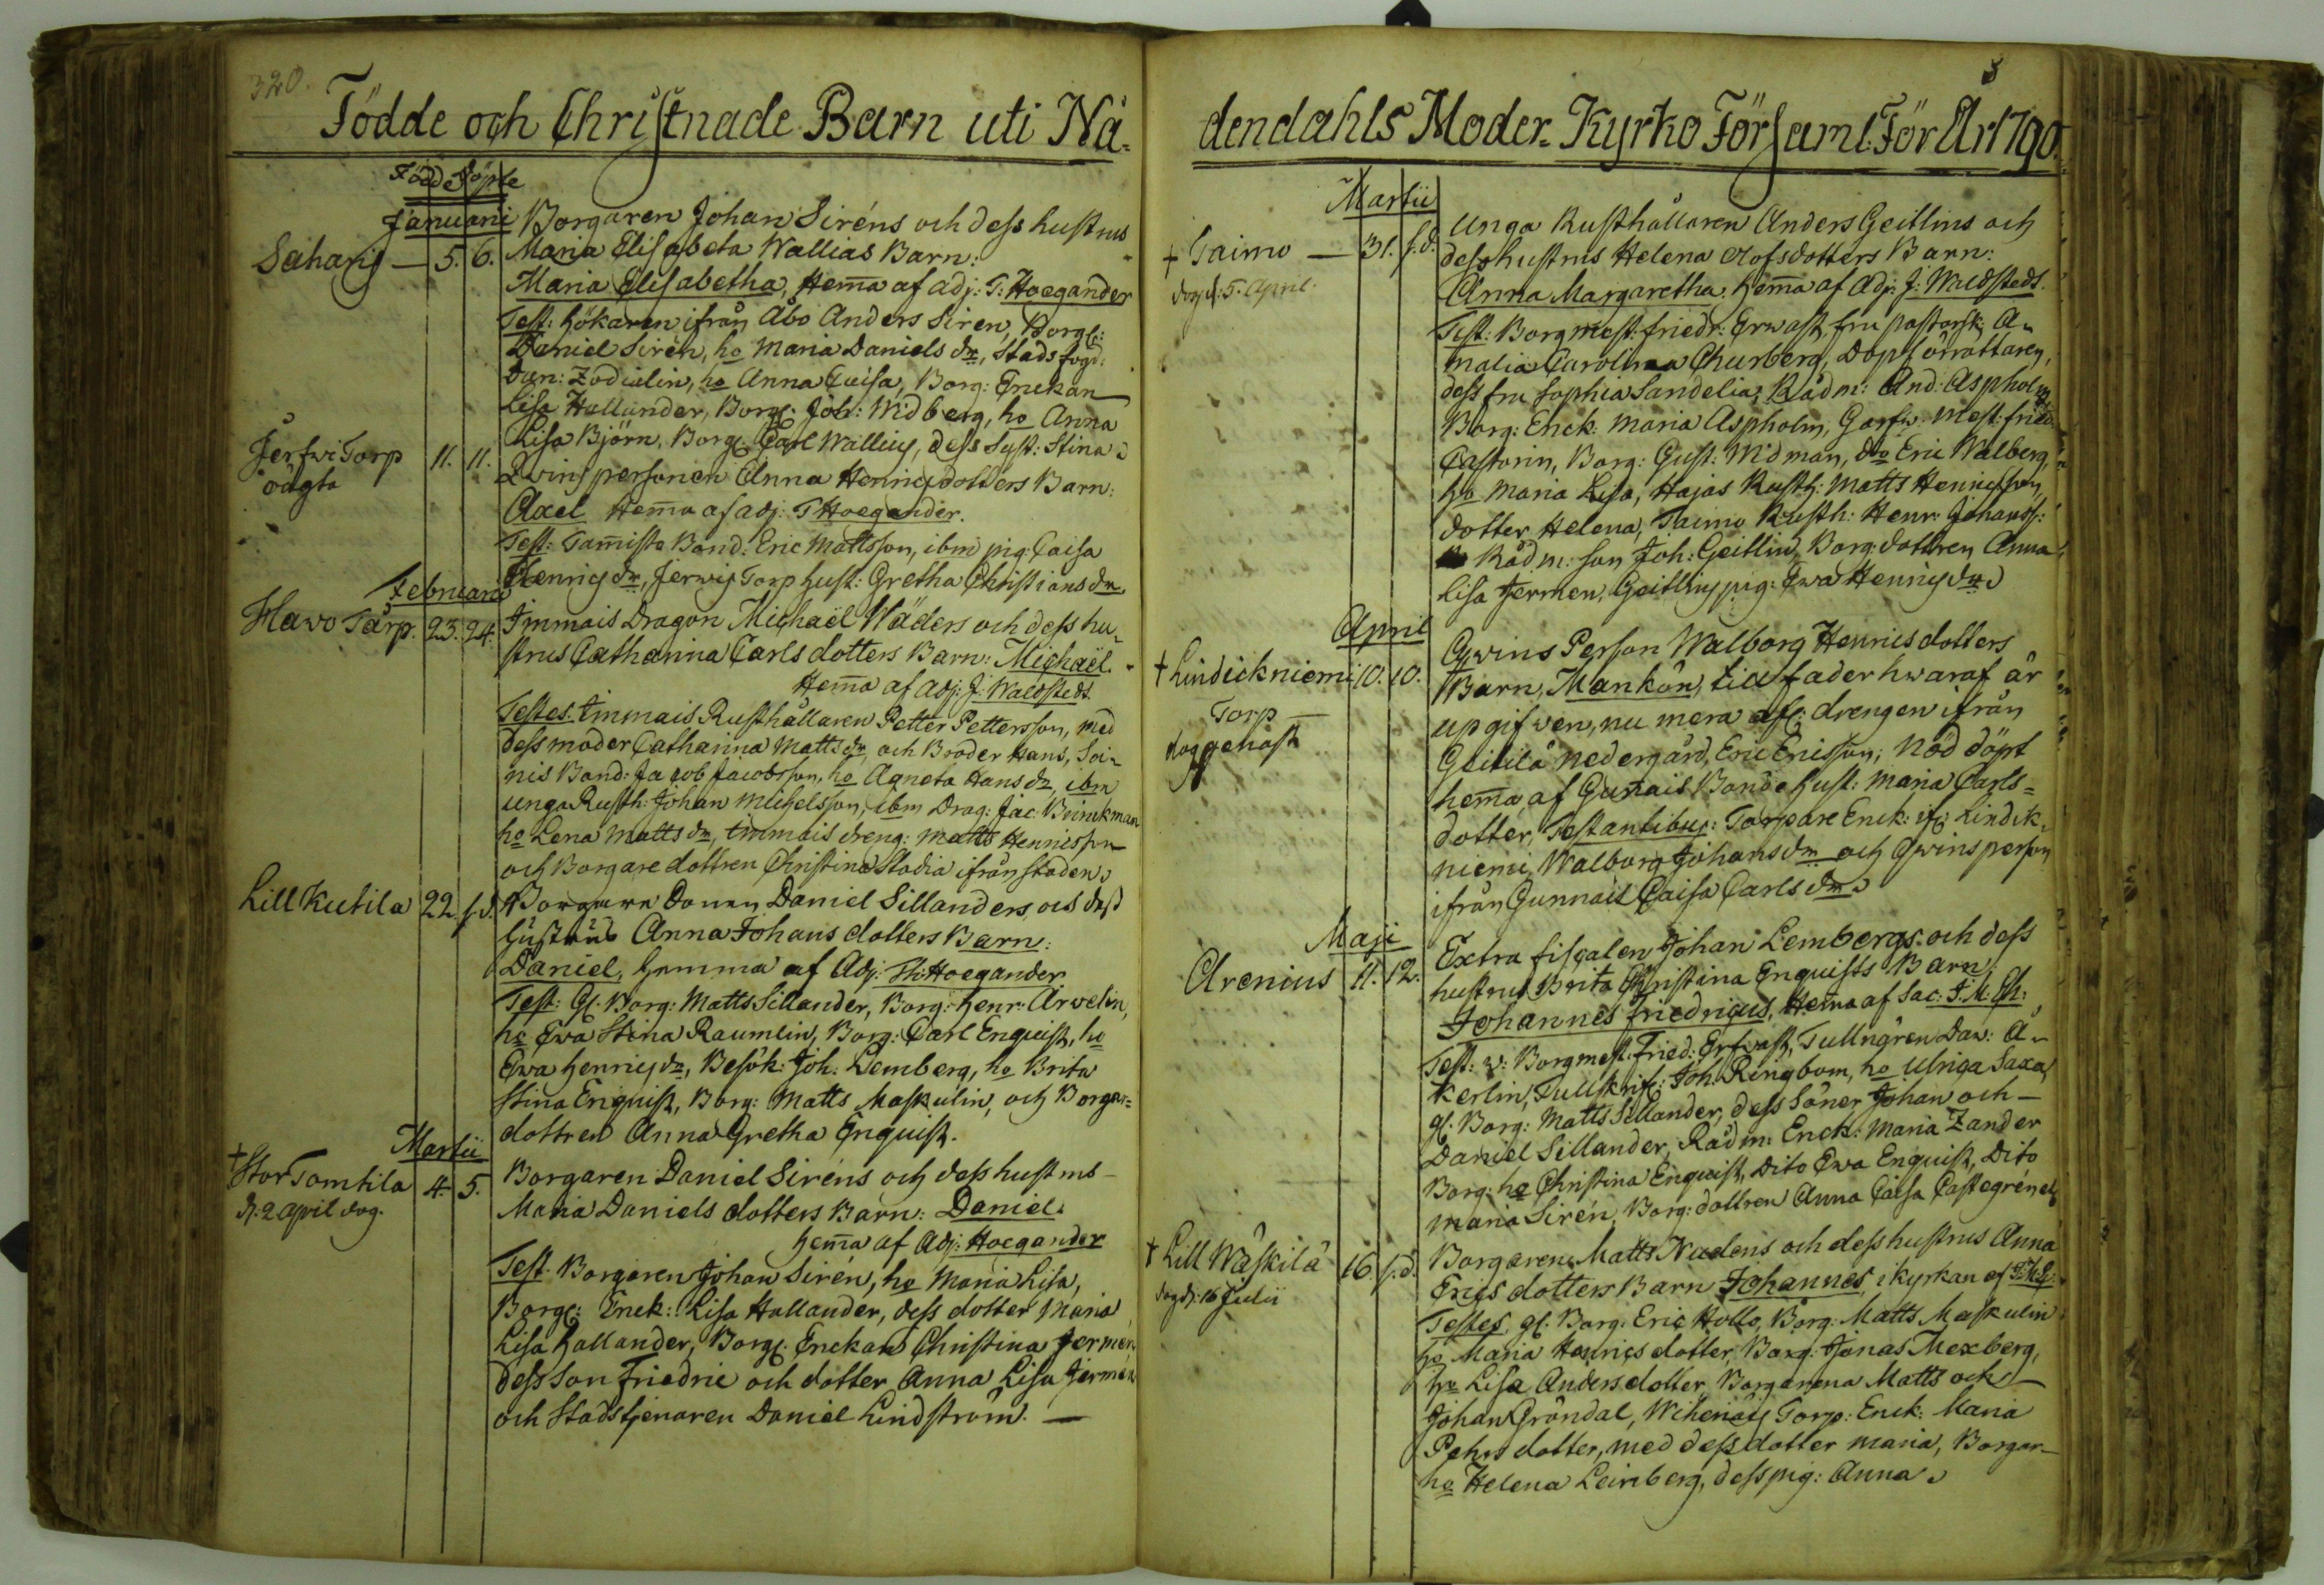 320.
Födde och Christnade Barn uti Nå-
Född Döpte
Januarii Borgaren Johan Siréns och dess hustrus
Saharis — 5. 6. Maria Elisabeta Wallias Barn:
Maria Elisabetha, Hema af adj: T: Hoegander
Test: hökaren ifrån Åbo Anders Siren, Borg:
Daniel Sirén, ho Maria Daniels dr, Stads fogd:
Dan: Zodiulin, ho Anna Caisa, Borg: Enckan
Lisa Hallander, Borg: Joh: Widberg, ho Anna
Lisa Björn, Borg: Carl Wallius, dess Syst: Stina
Jerfwi Torp 11. 11. Qwins personen Anna Henrics dotters Barn:
oägta
Axel Hema af adj: T Hoegander.
Test: Tamisto Bond: Eric Mattsson, ibm pig: Caisa
Henrics dr, Jerwis Torp hust: Gretha Christians dr.
Februarii
Hawo Tårp. 23. 24. Immais Dragon Michaël Wäders och dess hu-
strus Catharina Carls dotters Barn: Michaël.
Hema af adj: J: Waldsteds.
Testes. Immais Rusthållaren Petter Pettersson, med
dess moder Catharina Matts dr, och Broder Hans, Soi-
nis Bond: Jacob Jacobsson, ho Agneta Hans dr, ibm
unga Rusth: Johan Michelsson, ibm Drag: Jac: Brinckman
ho Lena Matts dr, Immais dreng: Matts Henricsson
och Borgare dottren Christina Stadia ifrån staden.
Lill Kutila 22. s.d. Borgaren Daniel Sillanders och dess
hustrus Anna Johans dotters Barn:
Daniel, hemma af Adj: Th: Hoegander
Test: Gl. Borg: Matts Sillander, Borg: henr: Arwelin,
ho Ewa Stina Raumlin, Borg: Carl Enquist, ho
Ewa henrics dr, Besök: Joh: Lemberg, ho Brita
Stina Enquist, Borg: Matts Maskulin, och Borgar=
dottren Anna Gretha Enquist.
Martii
† Stor Tomtila 4. 5. Borgaren Daniel Siréns och dess hustrus
d. 2 april dog. Maria Daniels dotters Barn: Daniel.
hema af Adj: Hoegander
Test. Borgaren Johan Sirén, ho Maria Lisa,
Borg: Enck: Lisa Hallander, dess dotter Maria
Lisa hallander, Borg: Enckan Christina Jermén
dess son Friedric och dotter Anna Lisa Jermén
och Stadstjenaren Daniel Lindström. —
dendahls Moder-Kyrko Församl. För År 1790.
Martii
† Taimo — 31. s.d. Unga Rusthållaren Anders Geitlins och
dog d: 5. April. dess hustrus Helena Olofsdotters Barn:
Anna Margaretha, hema af Adj: J: Waldsteds.
Test: Borgmest: friedr: Erwast, fru pastorsk: A-
malia Carolina Churberg, Dopförrättaren,
dess fru Sophia Sandelia, Rådm: And: Aspholm,
Borg: Enck: Maria Aspholm, Garfw: Mest: fried:
Castorin, Borg: Gust: Widman, dto Eric Walberg,
ho Maria Lisa, Hajas Rusth: Matts Henricsson,
dotter Helena, Taimo Rusth: Henr: Johanss:
Rådm: son Joh: Geitlin, Borg: dottren Anna
Lisa Jermen, Geitlins pig: Ewa Henrics dr.
April
† Lindickniemi 10. 10. Qwins Person Walborg Henrics dotters
Torp — Barn, Mankön, till fader hwaraf är
dog genast upgifwen, nu mera afl: drengen ifrån
Geitilä nedergård, Eric Ericsson; Nöd döpt
hema af Gunais Bonde hust: Maria Carls=
dotter, Testantibus: Torpare Enck: ifr: Lindik-
niemi, Walborg Johans dr och Qwins person
ifrån Gunnais Caisa Carls dr.
Maji
Arenius 11. 12. Extra fiscalen Johan Lembergs och dess
hustrus Brita Christina Enquists Barn,
Johannes friedricus, Hema af Sac: J. M. Eh:
Test: v: Borgmest: Fried: Erfwast, Tullnären Dan: A-
kerlin, Tullskrif: Joh: Ringbom, ho Ulrica Saxa,
gl. Borg: Matts Sillander, dess Söner Johan och —
Daniel Sillander, Rådm: Enck: Maria Zander
Borg: ho Christina Enquist, Dito Ewa Enquist, Dito
Maria Sirén, Borg: dottren Anna Caisa Castegren
† Lill Wäskilä 16. s.d. Borgaren Matts Nudens och dess hustrus Anna
dog d: 16 Julii Erics dotters Barn Johannes, i kyrkan af
Testes. gl. Borg: Eric Hollo, Borg: Matts Maskulin
ho Maria Henrics dotter, Borg: Jonas Mexberg,
ho Lisa Anders dotter, Borgarena Matts och —
Johan Gröndal, Torp: Enck: Maria
Pehrs dotter, med dess dotter Maria, Borgar-
ho Helena Leinberg, dess pig: Anna.